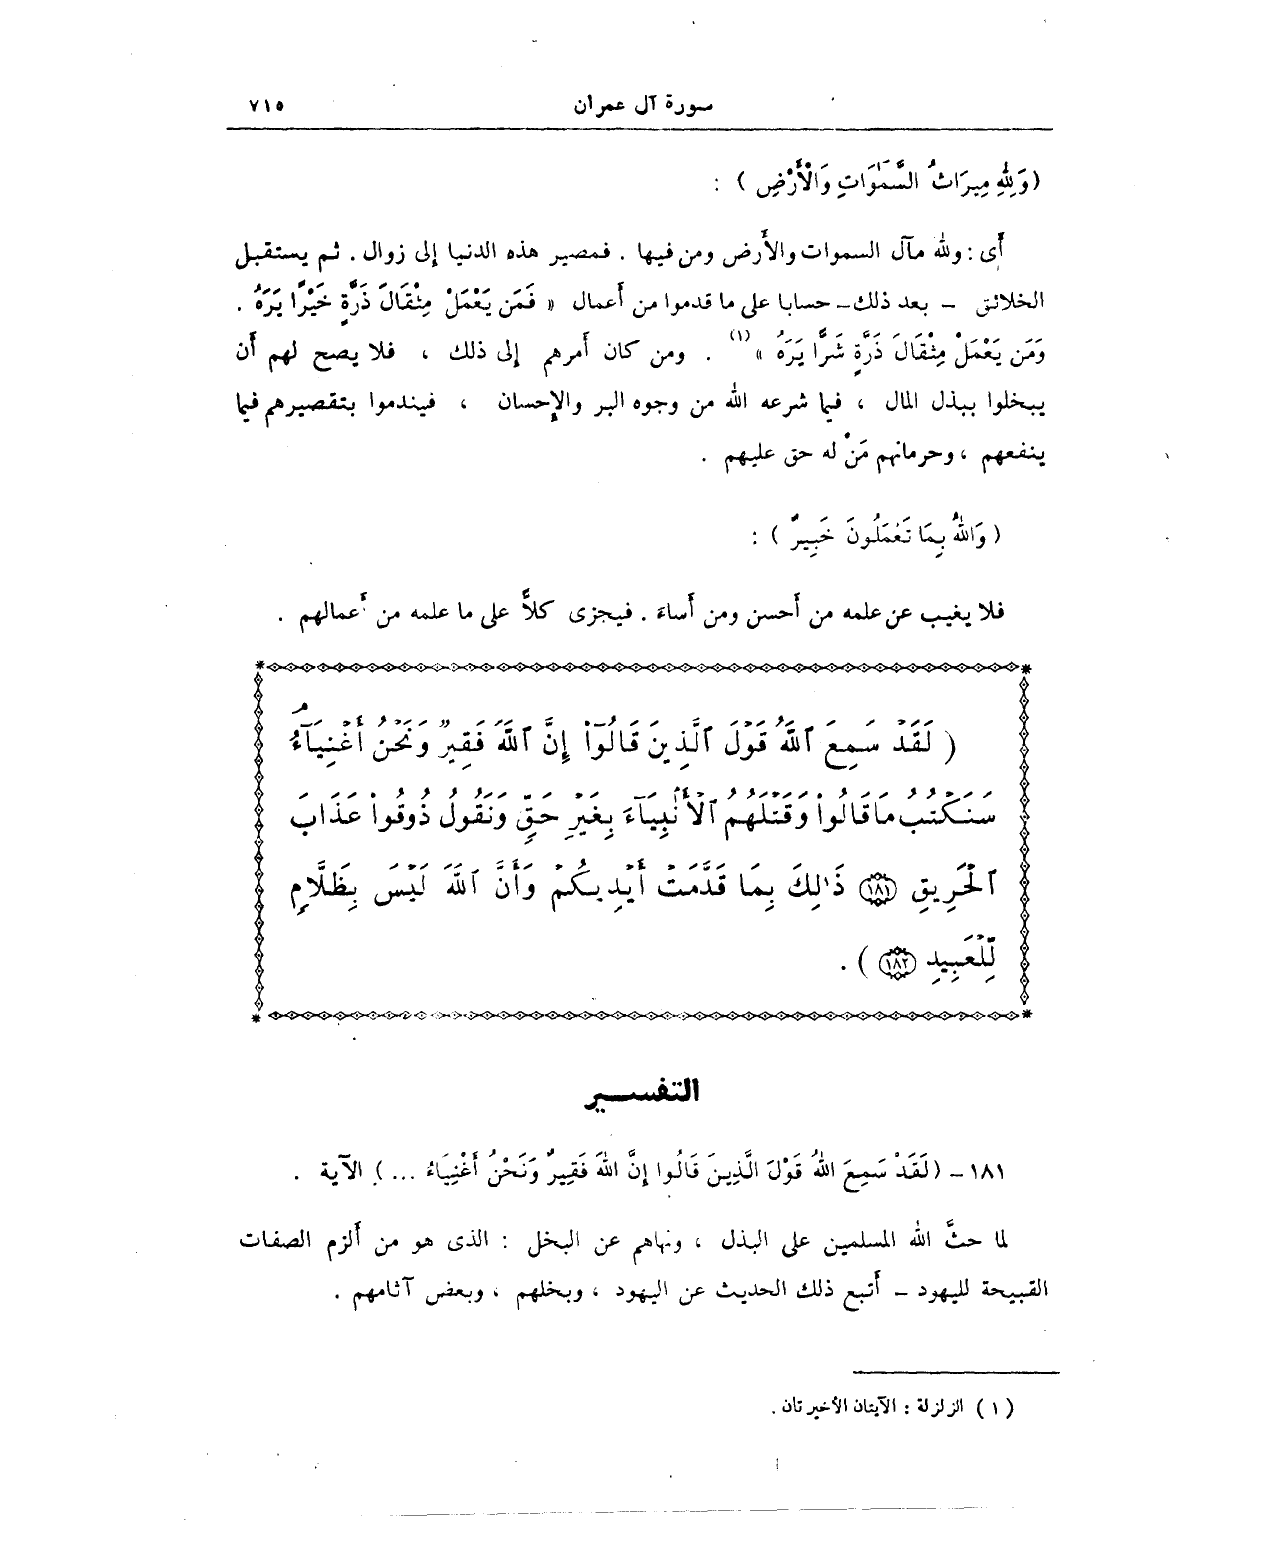 سورة آل عمران ٧١٥
(وَلِلهِ مِيرَاثُ السَّمَٰوَاتِ وَالْأَرْضِ ) :
أَى : ولله مآل السموات والأَرض ومن فيها . فمصير هذه الدنيا إلى زوال . ثم يستقبل
الخلائق – بعد ذلك – حسابا على ما قدموا من أَعمال « فَمَن يَعْمَلْ مِثْقَالَ ذَرَّةٍ خَيْرًا يَرَهُ .
وَمَن يَعْمَلْ مِثْقَالَ ذَرَّةٍ شَرًّا يَرَهُ » (١) . ومن كان أَمرهم إلى ذلك ، فلا يصح لهم أَن
يبخلوا ببذل المال ، فيما شرعه الله من وجوه البر والإحسان ، فيندموا بتقصيرهم فيما
ينفعهم ، وحرمانهم مَنْ له حق عليهم .
( وَاللهُ بِمَا تَعْمَلُونَ خَبِيرٌ ) :
فلا يغيب عن علمه من أَحسن ومن أَساءَ . فيجزى كلاًّ على ما علمه من أَعمالهم .
( لَقَدْ سَمِعَ ٱللَّهُ قَوْلَ ٱلَّذِينَ قَالُوٓاْ إِنَّ ٱللَّهَ فَقِيرٌ وَنَحْنُ أَغْنِيَآءُ ۘ
سَنَكْتُبُ مَا قَالُواْ وَقَتْلَهُمُ ٱلْأَنۢبِيَآءَ بِغَيْرِ حَقٍّ وَنَقُولُ ذُوقُواْ عَذَابَ
ٱلْحَرِيقِ ١٨١ ذَٰلِكَ بِمَا قَدَّمَتْ أَيْدِيكُمْ وَأَنَّ ٱللَّهَ لَيْسَ بِظَلَّامٍ
لِّلْعَبِيدِ ١٨٢ ) .
التفسير
١٨١ – (لَقَدْ سَمِعَ اللهُ قَوْلَ الَّذِينَ قَالُوا إِنَّ اللهَ فَقِيرٌ وَنَحْنُ أَغْنِيَاءُ ... ) الآية .
لما حثَّ الله المسلمين على البذل ، ونهاهم عن البخل : الذى هو من أَلزم الصفات
القبيحة لليهود – أَتبع ذلك الحديث عن اليهود ، وبخلهم ، وبعض آثامهم .
( ١ ) الزلزلة : الآيتان الأخيرتان .